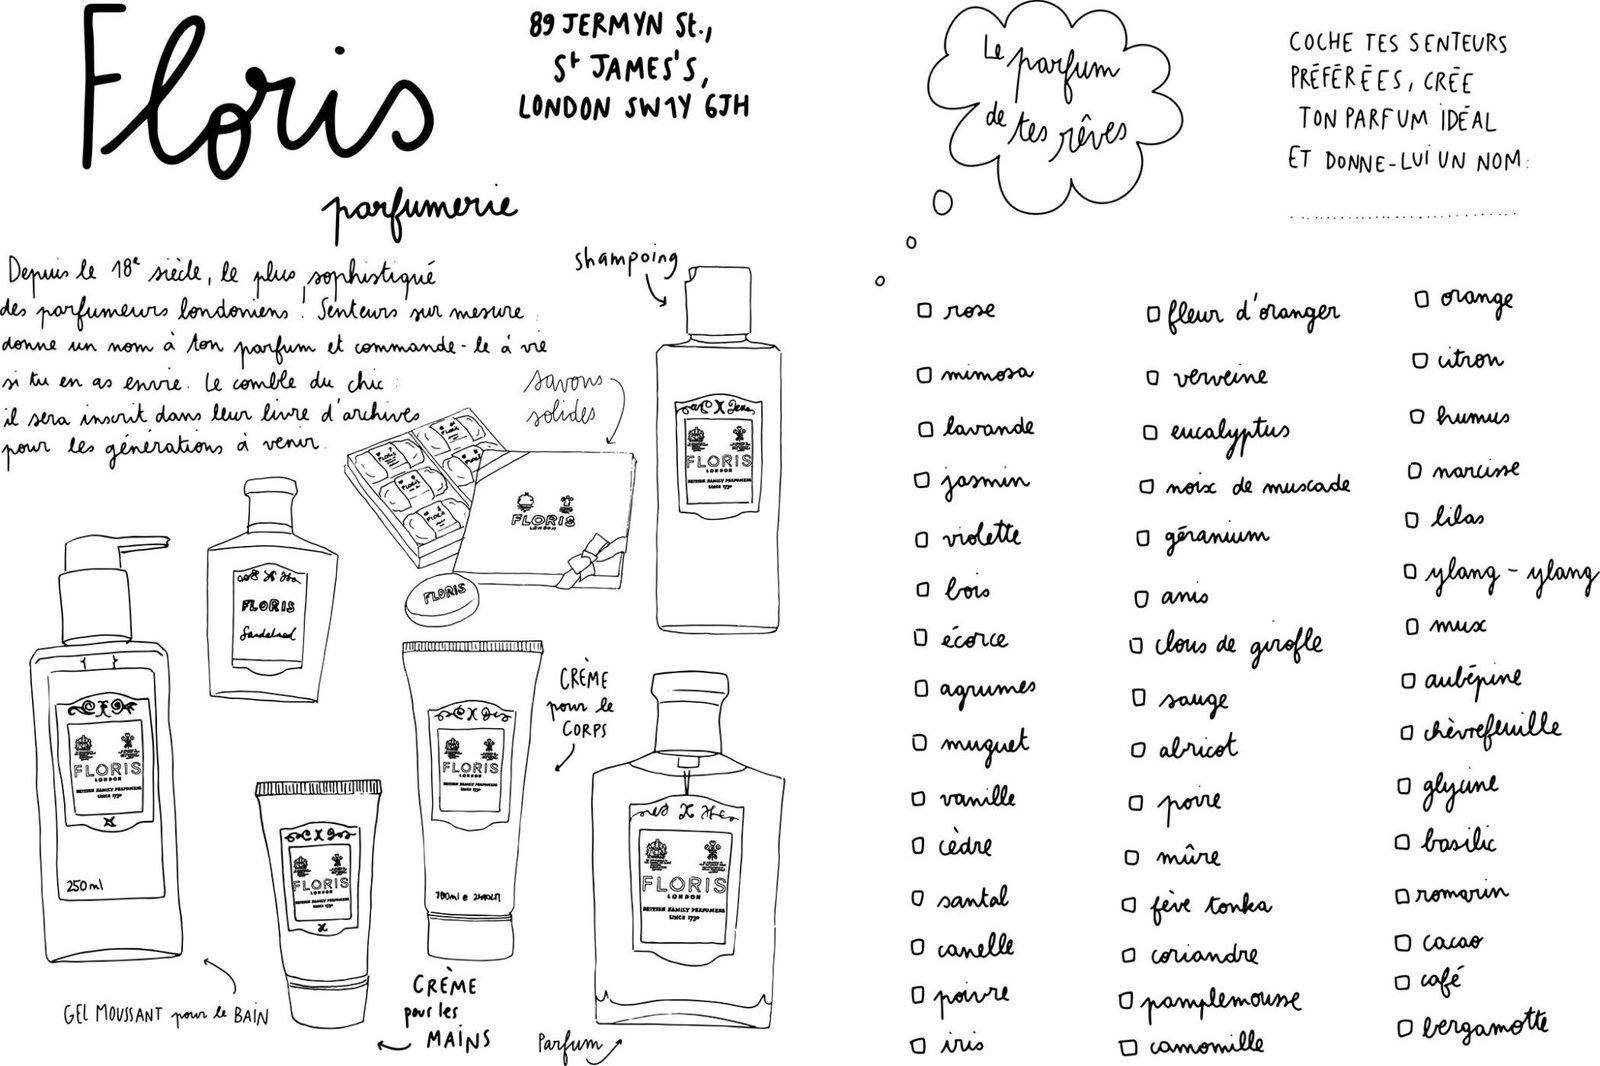 Floris
parfumerie
89 JERMYN St.,
St JAMES'S,
LONDON SW1Y 6JH
Depuis le 18e siècle, le plus sophistiqué
des parfumeurs londoniens ! Senteurs sur mesure :
donne un nom à ton parfum et commande-le à vie
si tu en as envie. Le comble du chic :
il sera inscrit dans leur livre d'archives
pour les générations à venir.
shampoing
savons
solides
FLORIS
LONDON
BRITISH FAMILY PERFUMERS
SINCE 1730
FLORIS
FLORIS
FLORIS
FLORIS
FLORIS
LONDON
FLORIS
FLORIS
Sandalwood
FLORIS
LONDON
BRITISH FAMILY PERFUMERS
SINCE 1730
250 ml
GEL MOUSSANT pour le BAIN
FLORIS
LONDON
BRITISH FAMILY PERFUMERS
SINCE 1730
CRÈME
pour le
CORPS
FLORIS
LONDON
CRÈME
pour les
MAINS
FLORIS
LONDON
BRITISH FAMILY PERFUMERS
SINCE 1730
Parfum
Le parfum
de tes rêves
COCHE TES SENTEURS
PRÉFÉRÉES, CRÉE
TON PARFUM IDÉAL
ET DONNE-LUI UN NOM :
rose
mimosa
lavande
jasmin
violette
bois
écorce
agrumes
muguet
vanille
cèdre
santal
canelle
poivre
iris
fleur d'oranger
verveine
eucalyptus
noix de muscade
géranium
anis
clous de girofle
sauge
abricot
poire
mûre
fève tonka
coriandre
pamplemousse
camomille
orange
citron
humus
narcisse
lilas
ylang-ylang
musc
aubépine
chèvrefeuille
glycine
basilic
romarin
cacao
café
bergamotte